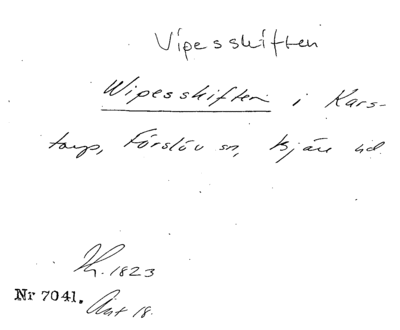 Vipesskiften
Wipesskiften i Kars-
torp, Förslöv sn, Bjäre hd.
Th. 1823
Nr 7041. Akt 18.